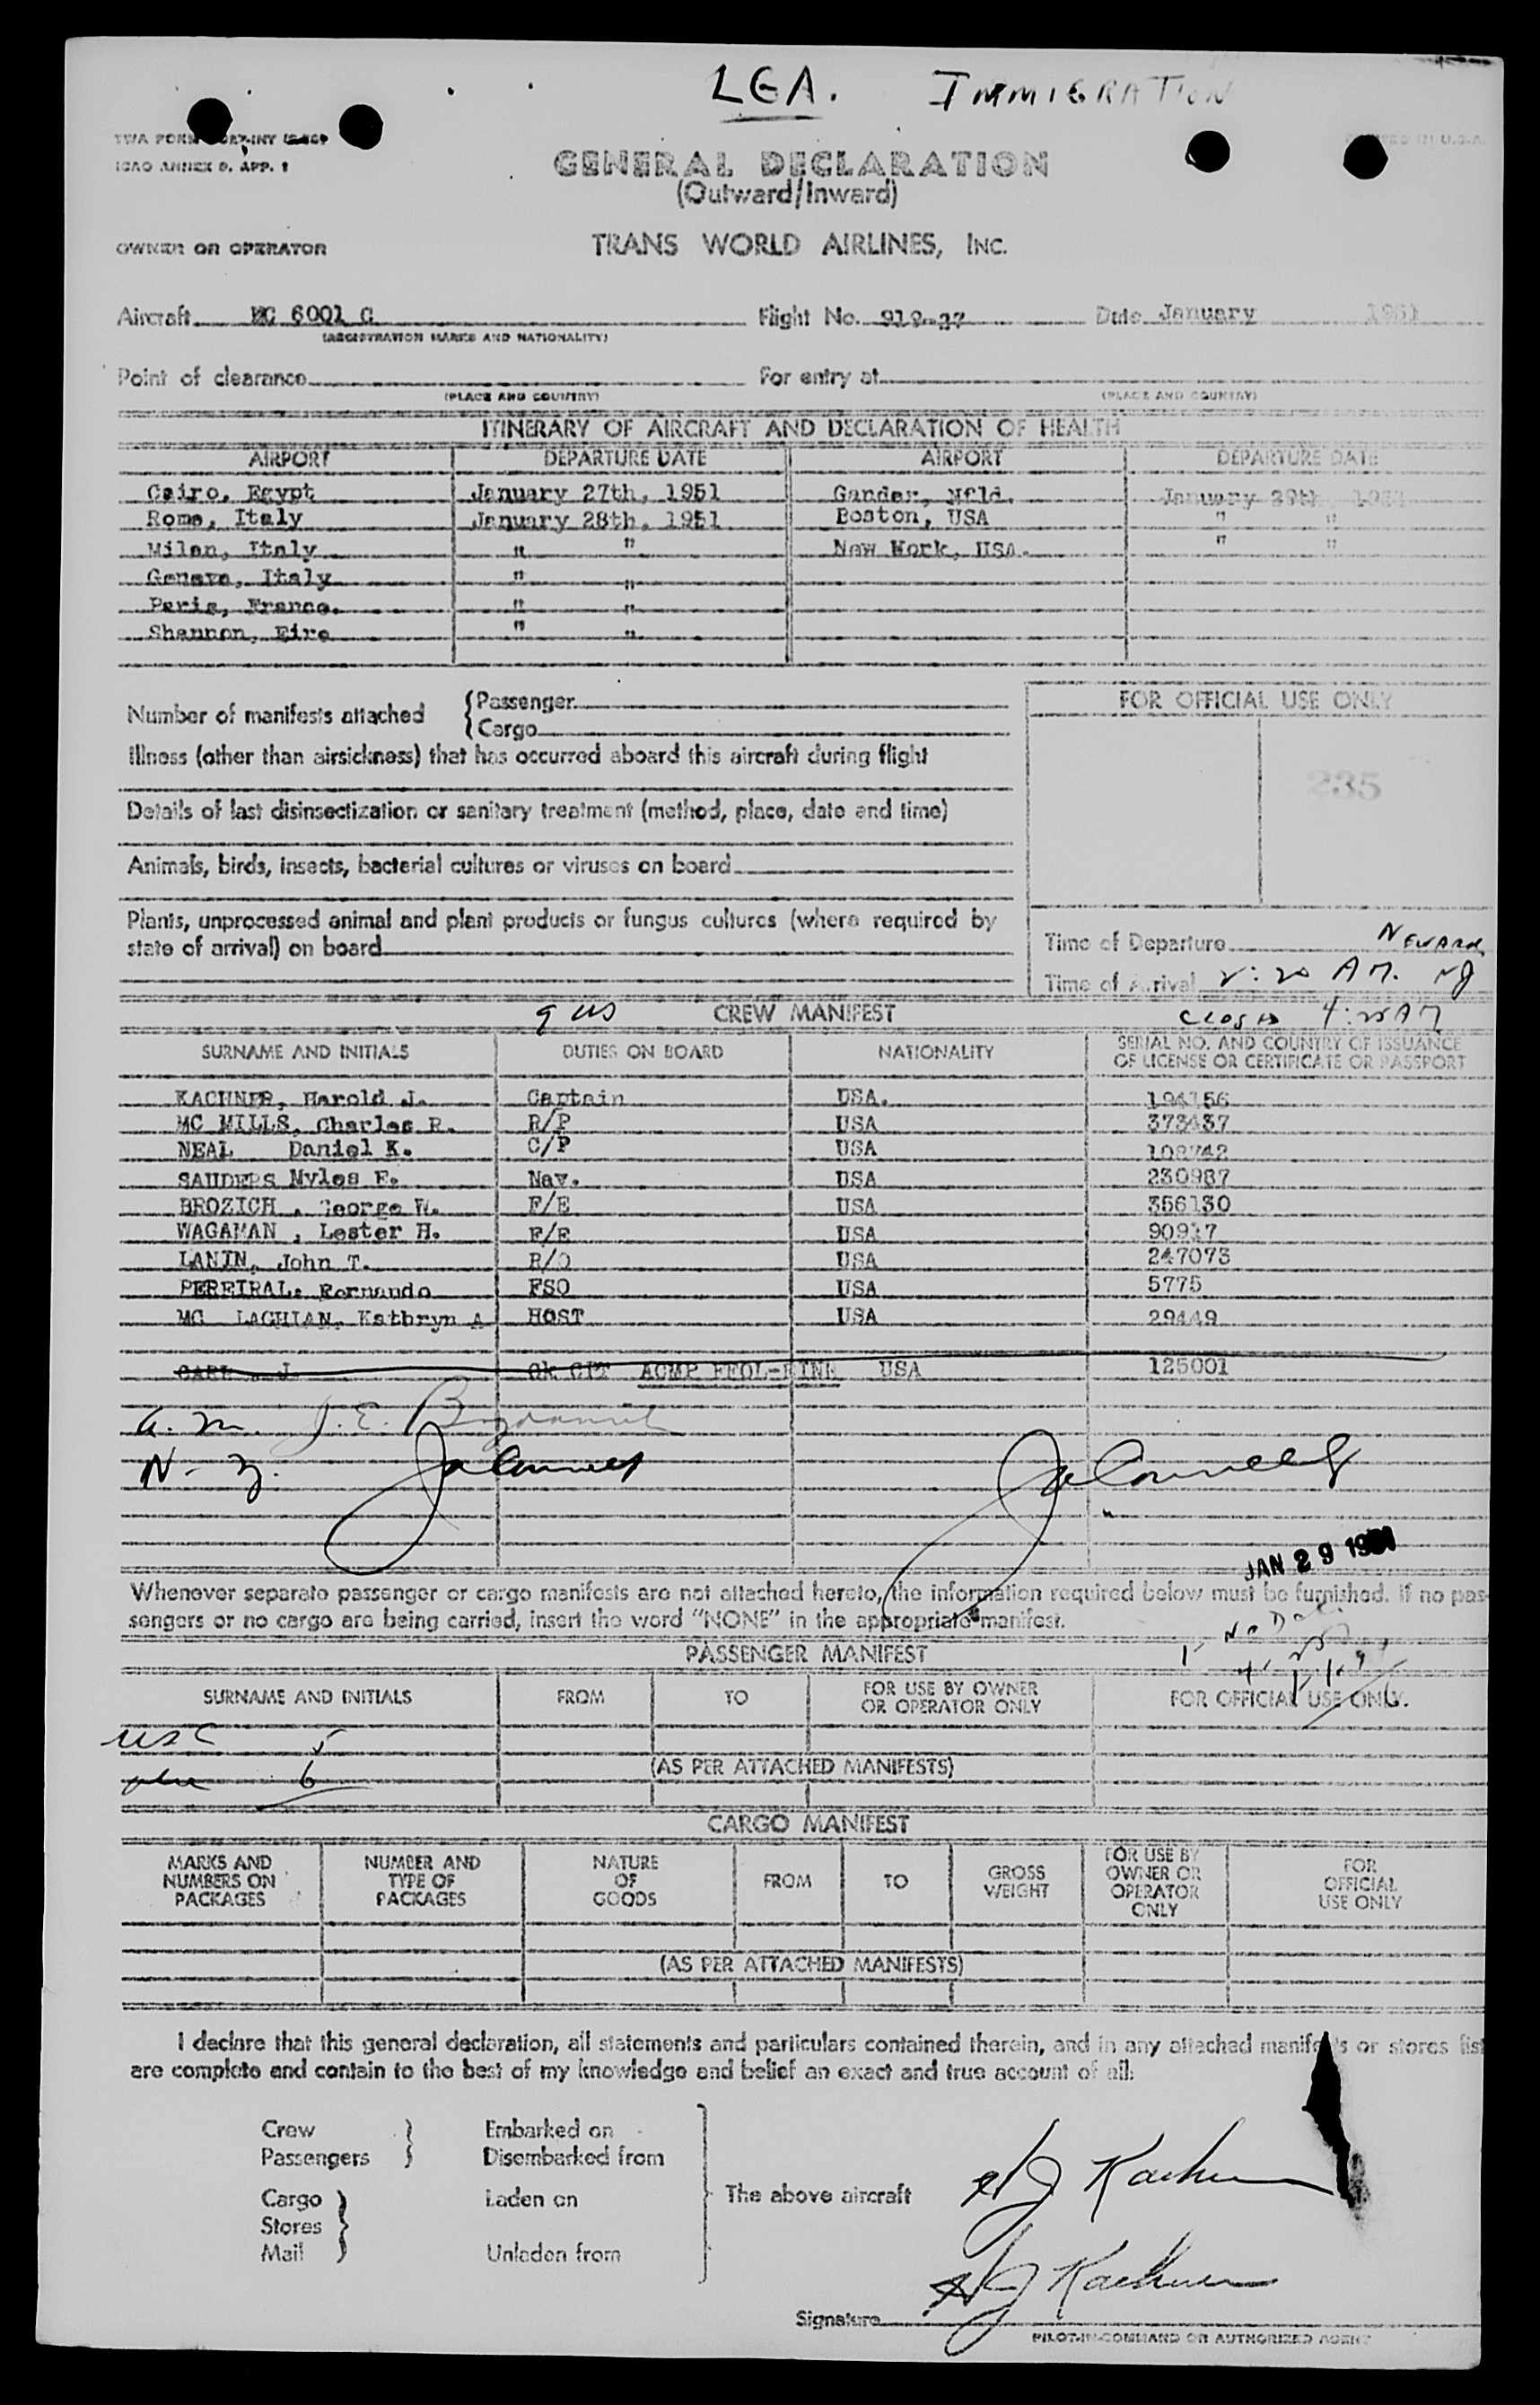 LGA. IMMIGRATION
ICAO ANNEX 9. APP. 1
GENERAL DECLARATION
(Outward/Inward)
OWNER OR OPERATOR TRANS WORLD AIRLINES, INC.
Aircraft NC 6001 C Flight No. Date January 1951
(REGISTRATION MARKS AND NATIONALITY)
Point of clearance For entry at
(PLACE AND COUNTRY) (PLACE AND COUNTRY)
ITINERARY OF AIRCRAFT AND DECLARATION OF HEALTH
AIRPORT DEPARTURE DATE AIRPORT DEPARTURE DATE
Cairo, Egypt January 27th, 1951 Gander, Nfld. January 29th, 1951
Rome, Italy January 28th, 1951 Boston, USA " "
Milan, Italy " " New Work, USA. " "
Geneva, Italy " "
Paris, France. " "
Shannon, Eire " "
Number of manifests attached {Passenger
{Cargo
FOR OFFICIAL USE ONLY
Illness (other than airsickness) that has occurred aboard this aircraft during flight
235
Details of last disinsectization or sanitary treatment (method, place, date and time)
Animals, birds, insects, bacterial cultures or viruses on board
Plants, unprocessed animal and plant products or fungus cultures (where required by
state of arrival) on board
Time of Departure NEWARK
Time of Arrival 2:20 AM. NJ
9 US CREW MANIFEST CLOSED 4:25 AM
SURNAME AND INITIALS DUTIES ON BOARD NATIONALITY SERIAL NO. AND COUNTRY OF ISSUANCE
OF LICENSE OR CERTIFICATE OR PASSPORT
KACHNER, Harold J. Captain USA. 194156
MC MILLS, Charles R. R/P USA 373437
NEAL Daniel K. C/P USA 108742
SAUDERS Myles F. Nav. USA 230987
BROZICH , George W. F/E USA 356130
WAGAMAN , Lester H. F/E USA 90917
LANIN, John T. R/O USA 247073
PEREIRAL, Fernando FSO USA 5775
MC LACHLAN, Kathryn A HOST USA 29449
CARL J Ck CPT ACMP USA 125001
a. m. J. E.
N. Y.
JAN 29 1951
Whenever separate passenger or cargo manifests are not attached hereto, the information required below must be furnished. If no pas-
sengers or no cargo are being carried, insert the word "NONE" in the appropriate manifest.
PASSENGER MANIFEST
SURNAME AND INITIALS FROM TO FOR USE BY OWNER
OR OPERATOR ONLY
FOR OFFICIAL USE ONLY.
USC 5
6
(AS PER ATTACHED MANIFESTS)
CARGO MANIFEST
MARKS AND
NUMBERS ON
PACKAGES
NUMBER AND
TYPE OF
PACKAGES
NATURE
OF
GOODS
FROM TO GROSS
WEIGHT
FOR USE BY
OWNER OR
OPERATOR
ONLY
FOR
OFFICIAL
USE ONLY
(AS PER ATTACHED MANIFESTS)
I declare that this general declaration, all statements and particulars contained therein, and in any attached manifests or stores list
are complete and contain to the best of my knowledge and belief an exact and true account of all:
Crew } Embarked on
Passengers } Disembarked from
Cargo } Laden on The above aircraft HJ Kachner
Stores }
Mail } Unladen from
HJ Kachner
Signature
PILOT-IN-COMMAND OR AUTHORIZED AGENT